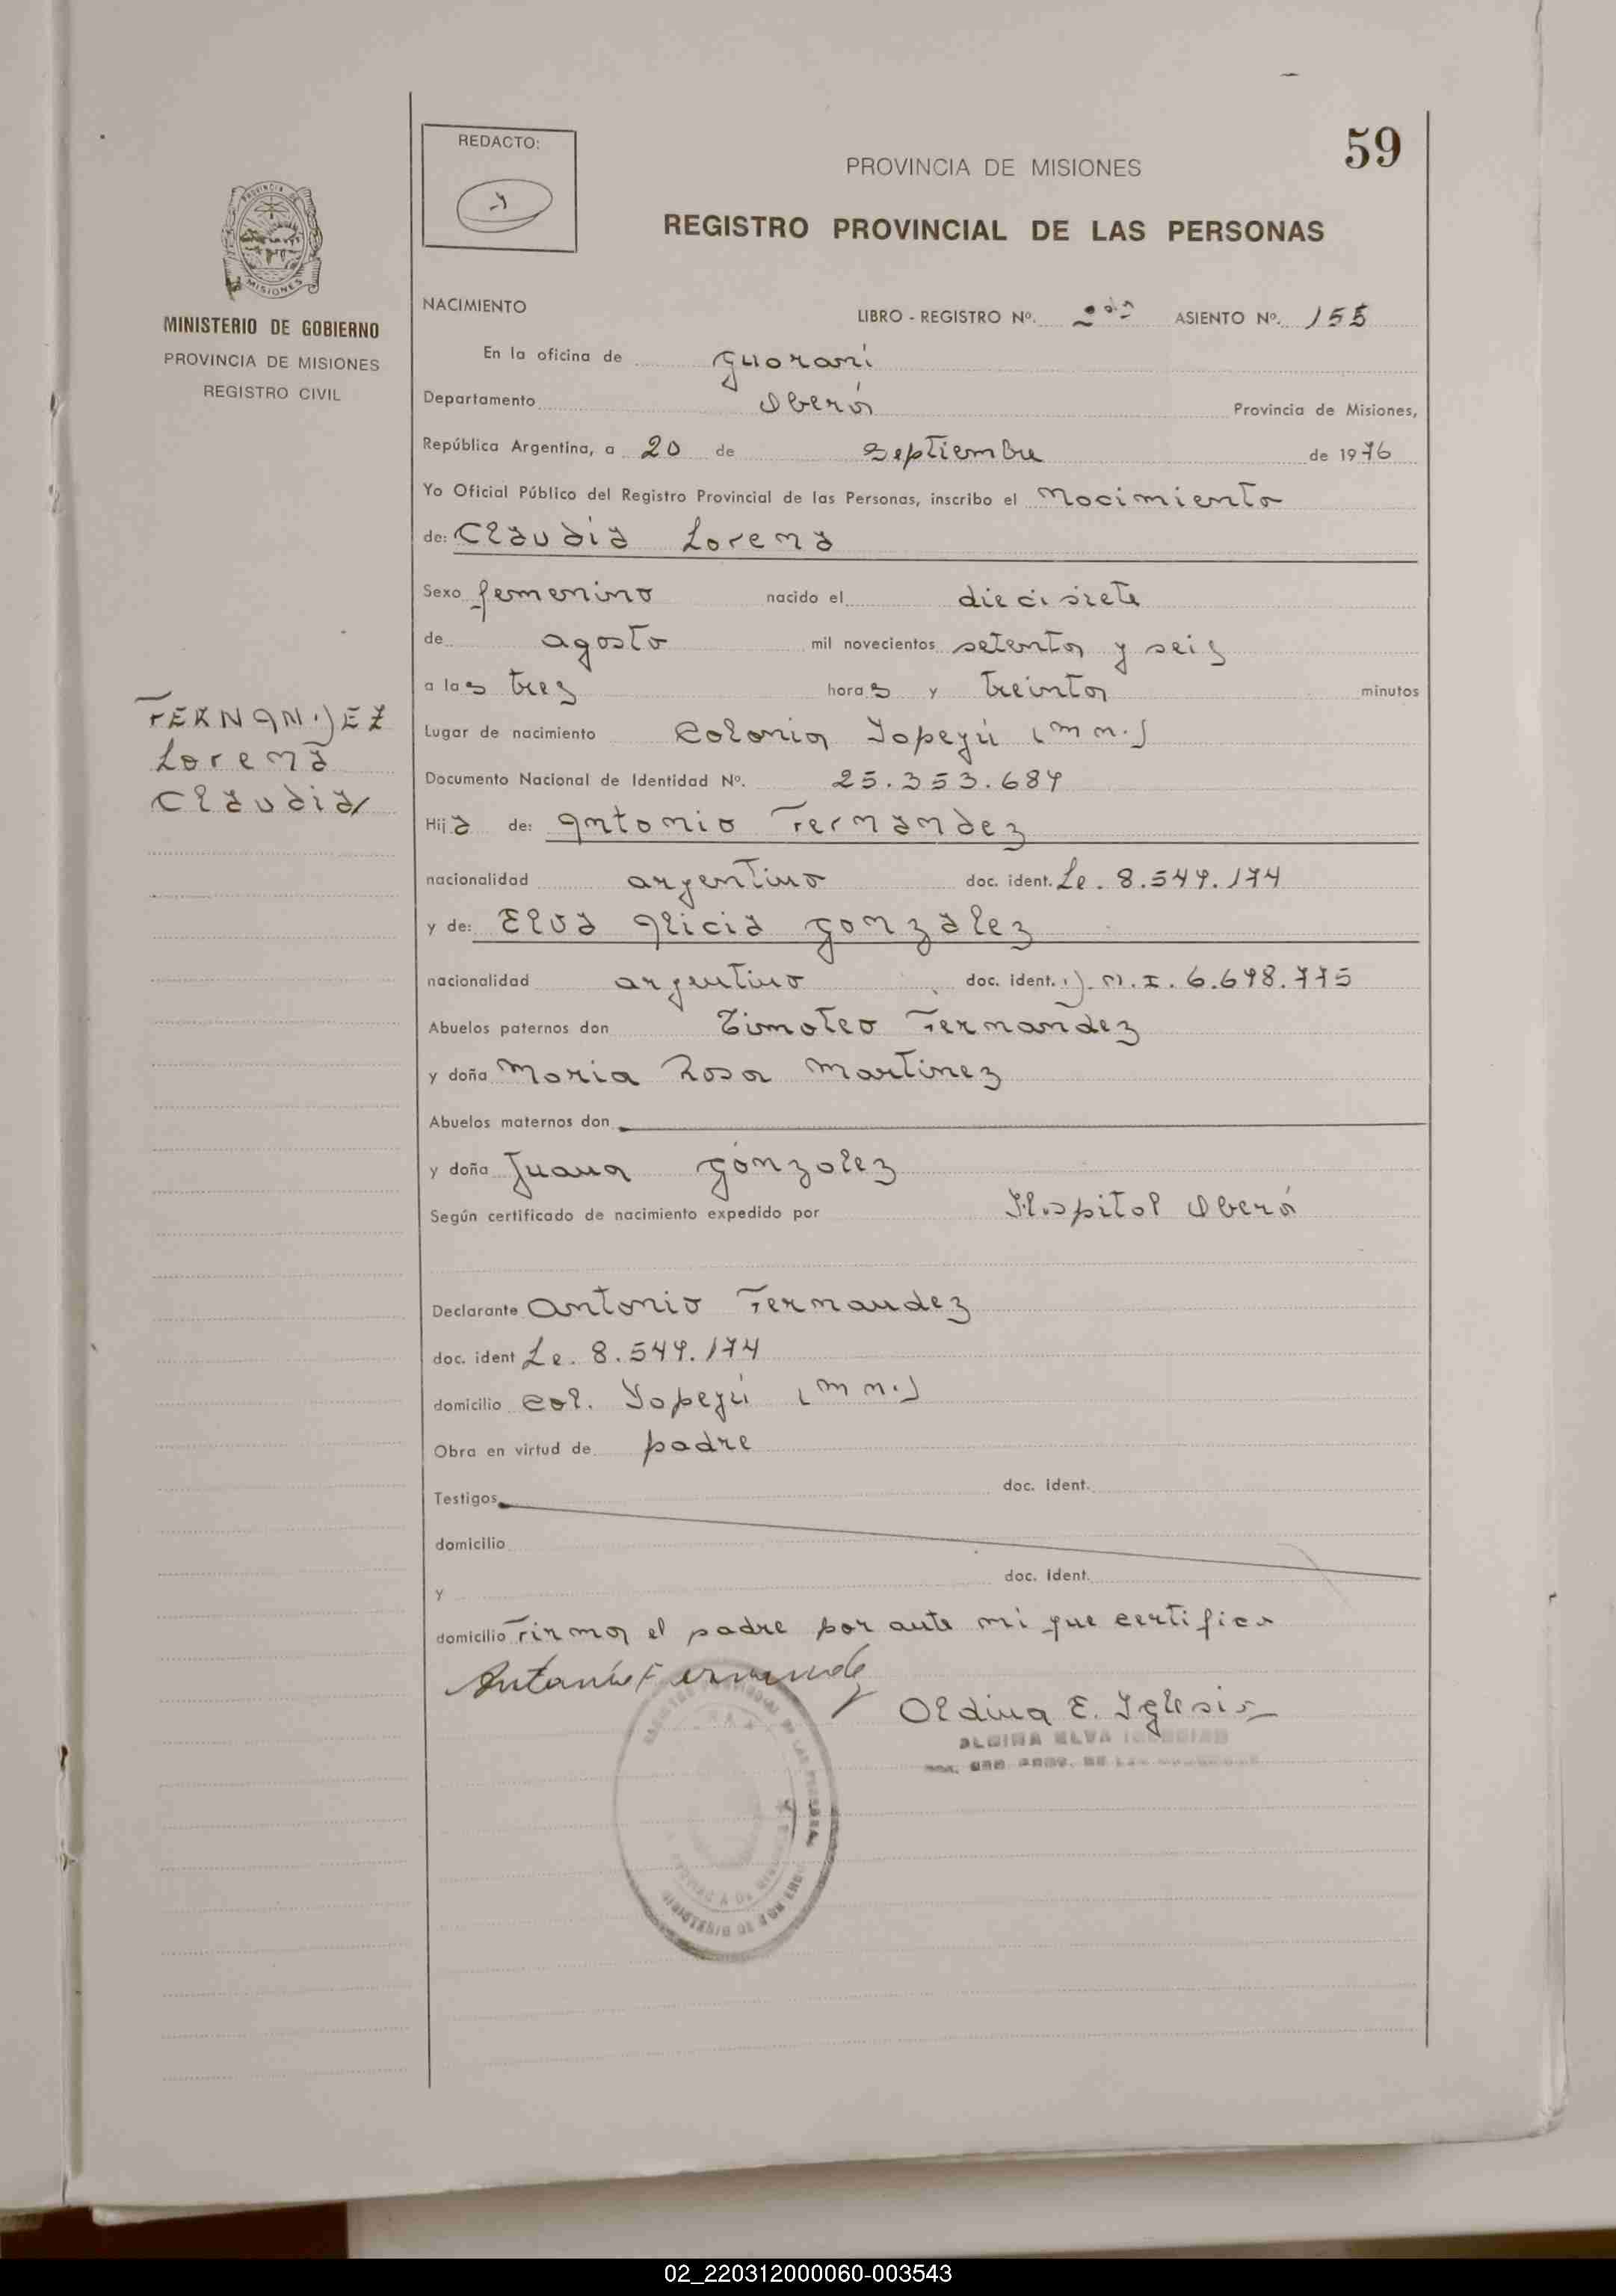 REDACTO:
59
PROVINCIA DE MISIONES
REGISTRO PROVINCIAL DE LAS PERSONAS
MINISTERIO DE GOBIERNO
PROVINCIA DE MISIONES
REGISTRO CIVIL
NACIMIENTO
LIBRO - REGISTRO Nº. 2do ASIENTO Nº. 155
En la oficina de Guarani
Departamento Oberá Provincia de Misiones,
República Argentina, a 20 de Septiembre de 1976
Yo Oficial Público del Registro Provincial de las Personas, inscribo el Nacimiento
de: Claudia Lorena
Sexo femenino nacido el diecisiete
de agosto mil novecientos setenta y seis
a las tres horas y treinta minutos
FERNANDEZ
Lorena
Claudia
Lugar de nacimiento Colonia Yapeyú (Mnes.)
Documento Nacional de Identidad Nº. 25.353.689
Hija de: Antonio Fernandez
nacionalidad argentino doc. ident. Le. 8.549.174
y de: Elva Alicia Gonzalez
nacionalidad argentina doc. ident. D.N.I. 6.698.775
Abuelos paternos don Timoteo Fernandez
y doña Maria Rosa Martinez
Abuelos maternos don
y doña Juana Gonzalez
Según certificado de nacimiento expedido por Hospital Oberá
Declarante Antonio Fernandez
doc. ident Le. 8.549.174
domicilio Col. Yapeyú (Mnes.)
Obra en virtud de padre
Testigos doc. ident.
domicilio
y doc. ident.
domicilio Firma el padre por ante mi que certifica
Antonio Fernandez
Oldina E. Iglesias
MINISTERIO DE
02_220312000060-003543